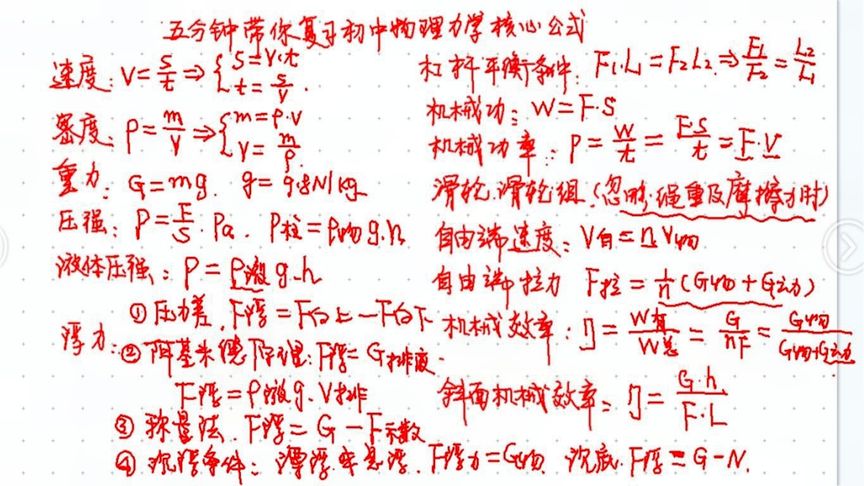 五分钟带你复习初中物理力学核心公式
速度: V=S/t⇒{S=V·t
t=S/V
密度: ρ=m/V⇒{m=ρ·V
V=m/ρ
重力: G=mg. g=9.8N/kg
压强: P=F/S. Pa. P柱=ρ物g.h
液体压强: P=ρ液g.h
浮力: ①压力差. F浮=F向上-F向下
②阿基米德原理: F浮=G排液.
F浮=ρ液g.V排
③称量法. F浮=G-F示数
④沉浮条件: 漂浮或悬浮. F浮力=G物. 沉底. F浮=G-N.
杠杆平衡条件: F1·L1=F2L2.⇒F1/F2=L2/L1
机械功: W=F·S
机械功率: P=W/t=F·S/t=F.V
滑轮.滑轮组.(忽略绳重及摩擦力时)
自由端速度: V自=n.V物
自由端拉力 F拉=1/n(G物+G动)
机械效率: η=W有/W总=G/nF=G物/G物+G动
斜面机械效率: η=G.h/F·L